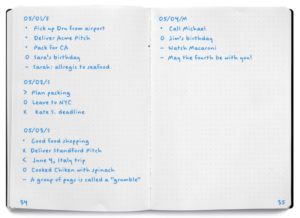 05/01/S
• Pick up Dru from airport
• Deliver Acme Pitch
• Pack for CA
O Sara's birthday
– Sarah: allergic to seafood
05/02/S
> Plan packing
O Leave to NYC
X Kate's deadline
05/03/S
• Good food shopping
X Deliver Standford Pitch
< June 4, Italy trip
O Cooked Chiken with spinach
– A group of pugs is called a "grumble"
34
05/04/M
• Call Michael
O Jim's birthday
– Watch Macaroni
– May the fourth be with you!
35